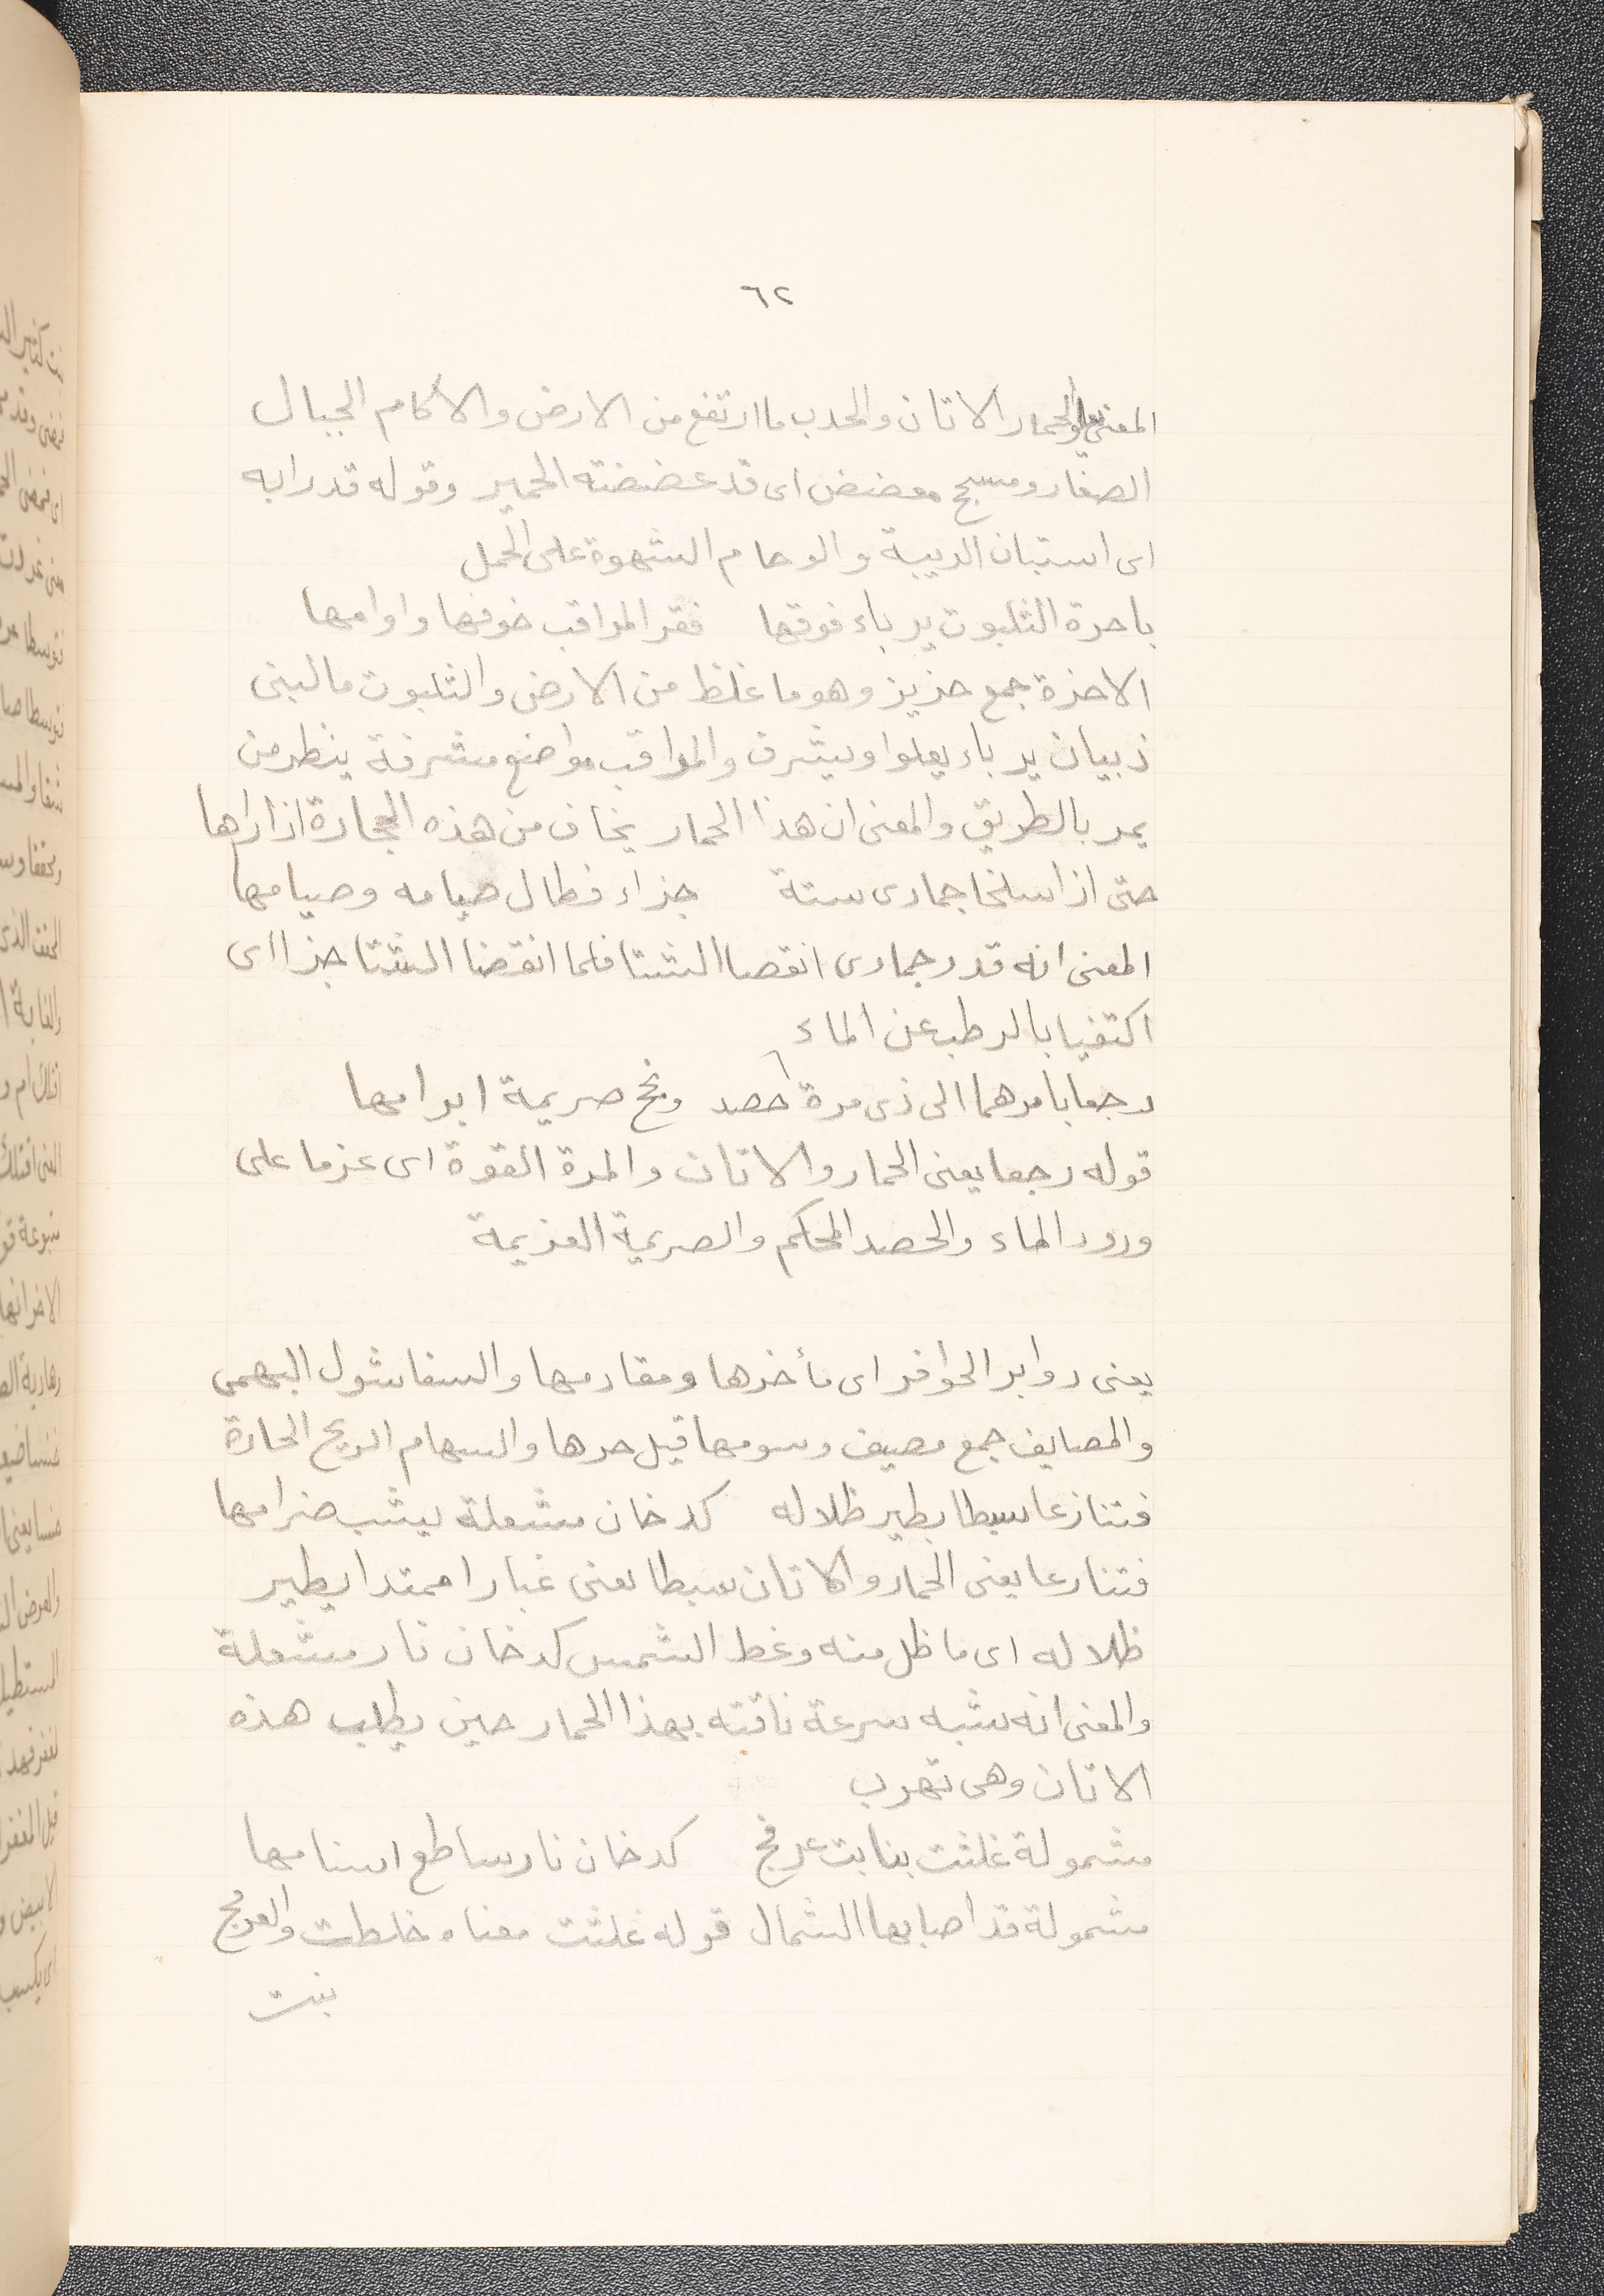 ٦٢
المعنى يعلو الحمار الاتان والحدب ما ارتفع من الارض والاكام الجبال
الصغار ومسحج معضض اى قد عضضته الحمير وقوله قد رابه
اى استبان الريبة والوحام الشهوة على الحمل
باحزة الثلبوت يرباء فوقها فقر المراقب خوفها وارامها
الاحزة جمع حزيز وهو ما غلظ من الارض والثلبوت ما لبنى
ذبيان يرباء يعلوا ويشرف والمراقب مواضع مشرفة ينظر من
يمر بالطريق والمعنى ان هذا الحمار يخاف من هذه الحجارة اذا راها
حتى اذا سلخا جمادى ستة جزاء فطال صيامه وصيامها
المعنى انه قدر جمادى انقصا الشتا فلما انقضا الشتا جزا اى
اكتفيا بالرطب عن الماء
رجعا بامرهما الى ذى مرة حصد ونجح صريمة ابرامها
قوله رجعا يعنى الحمار والاتان والمرة القوة اى عزما على
ورود الماء والحصد المحكم والصريمة العزيمة
يعنى دوابر الحوافر اى مأخرها ومقادمها والسفا شوك البهمى
والمصايف جمع مصيف وسومها قيل حرها والسهام الريح الحارة
فتنازعا سبطا يطير ظلاله كدخان مشعلة يشب ضرامها
فتنازعا يعنى الحمار والاتان سبطا يعنى غبارا ممتدا يطير
ظلاله اى ما ظل منه وغط الشمس كدخان نار مشعلة
والمعنى انه شبه سرعة ناقته بهذا الحمار حين يطلب هذه
الاتان وهى تهرب
مشمولة غلثت بنابت عرفج كدخان نار ساطع اسنامها
مشمولة قد اصابها الشمال قوله غلثت معناه خلطت والعرفج
بنت